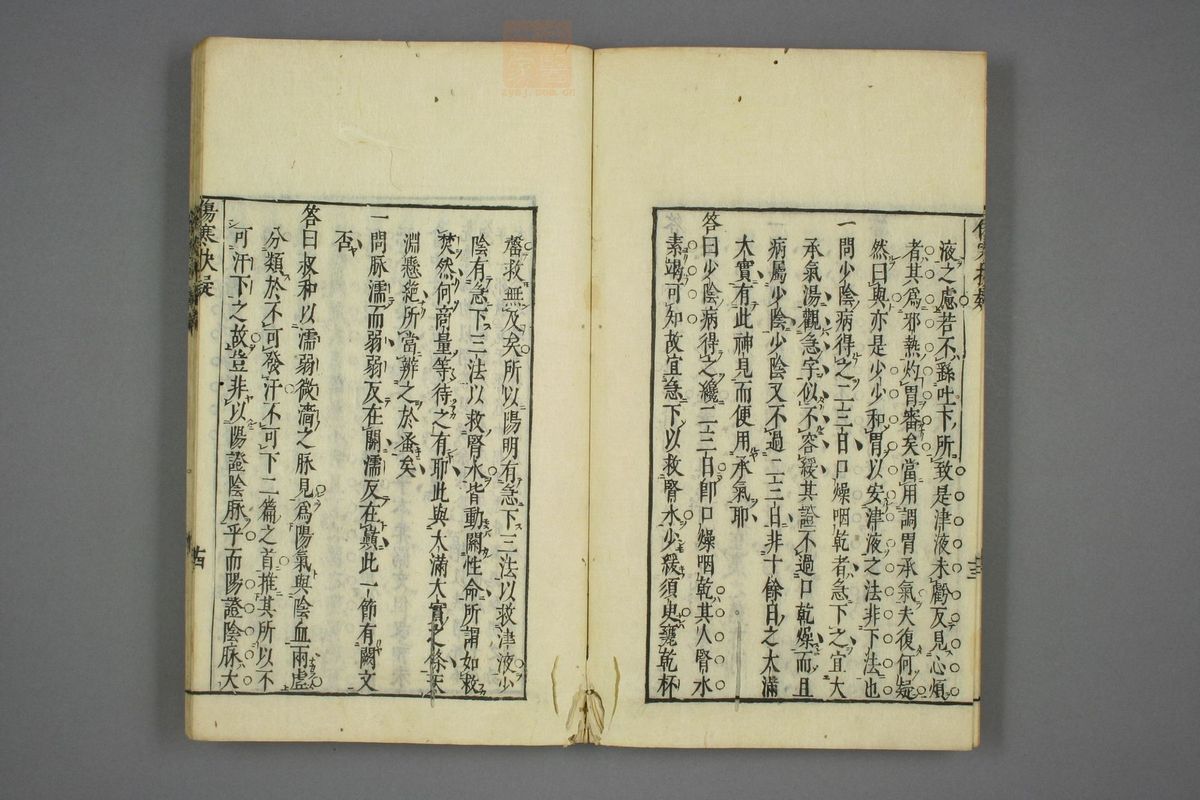 液之慮若不繇吐下所致是津液未虧反見心煩
者其爲邪熱灼胃審矣當用調胃承氣夫復何疑
然曰與亦是少少和胃以安津液之法非下法也
一問少陰病得之二三日口燥咽乾者急下之宜大
承氣湯觀急字似不容緩其證不過口乾燥而且
病屬少陰少陰又不過二三日非十餘日之大滿
大實有此神見而便用承氣耶
答曰少陰病得之纔二三日即口燥咽乾其人腎水
素竭可知故宜急下以救腎水少緩須臾甕乾杯
罄救無及矣所以陽明有急下三法以救津液少
陰有急下三法以救腎水皆動關性命所謂如救
焚然何商量等待之有耶此與大滿大實之條天
淵懸絕所當辨之於蚤矣
一問脉濡而弱弱反在關濡反在巔此一節有闕文
否
答曰叔和以濡弱微濇之脉見爲陽氣與陰血兩虛
分類於不可發汗不可下二篇之首推其所以不
可汗下之故豈非以陽證陰脉乎而陽證陰脉大
傷寒決疑
十四